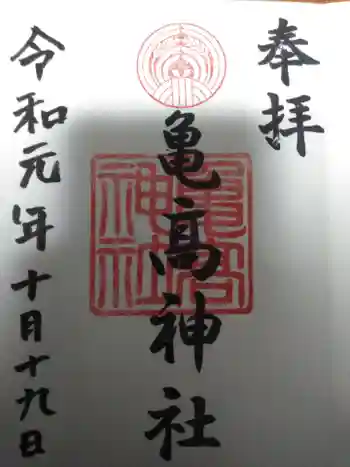 奉拝
亀高神社
亀高
神社
令和元年十月十九日